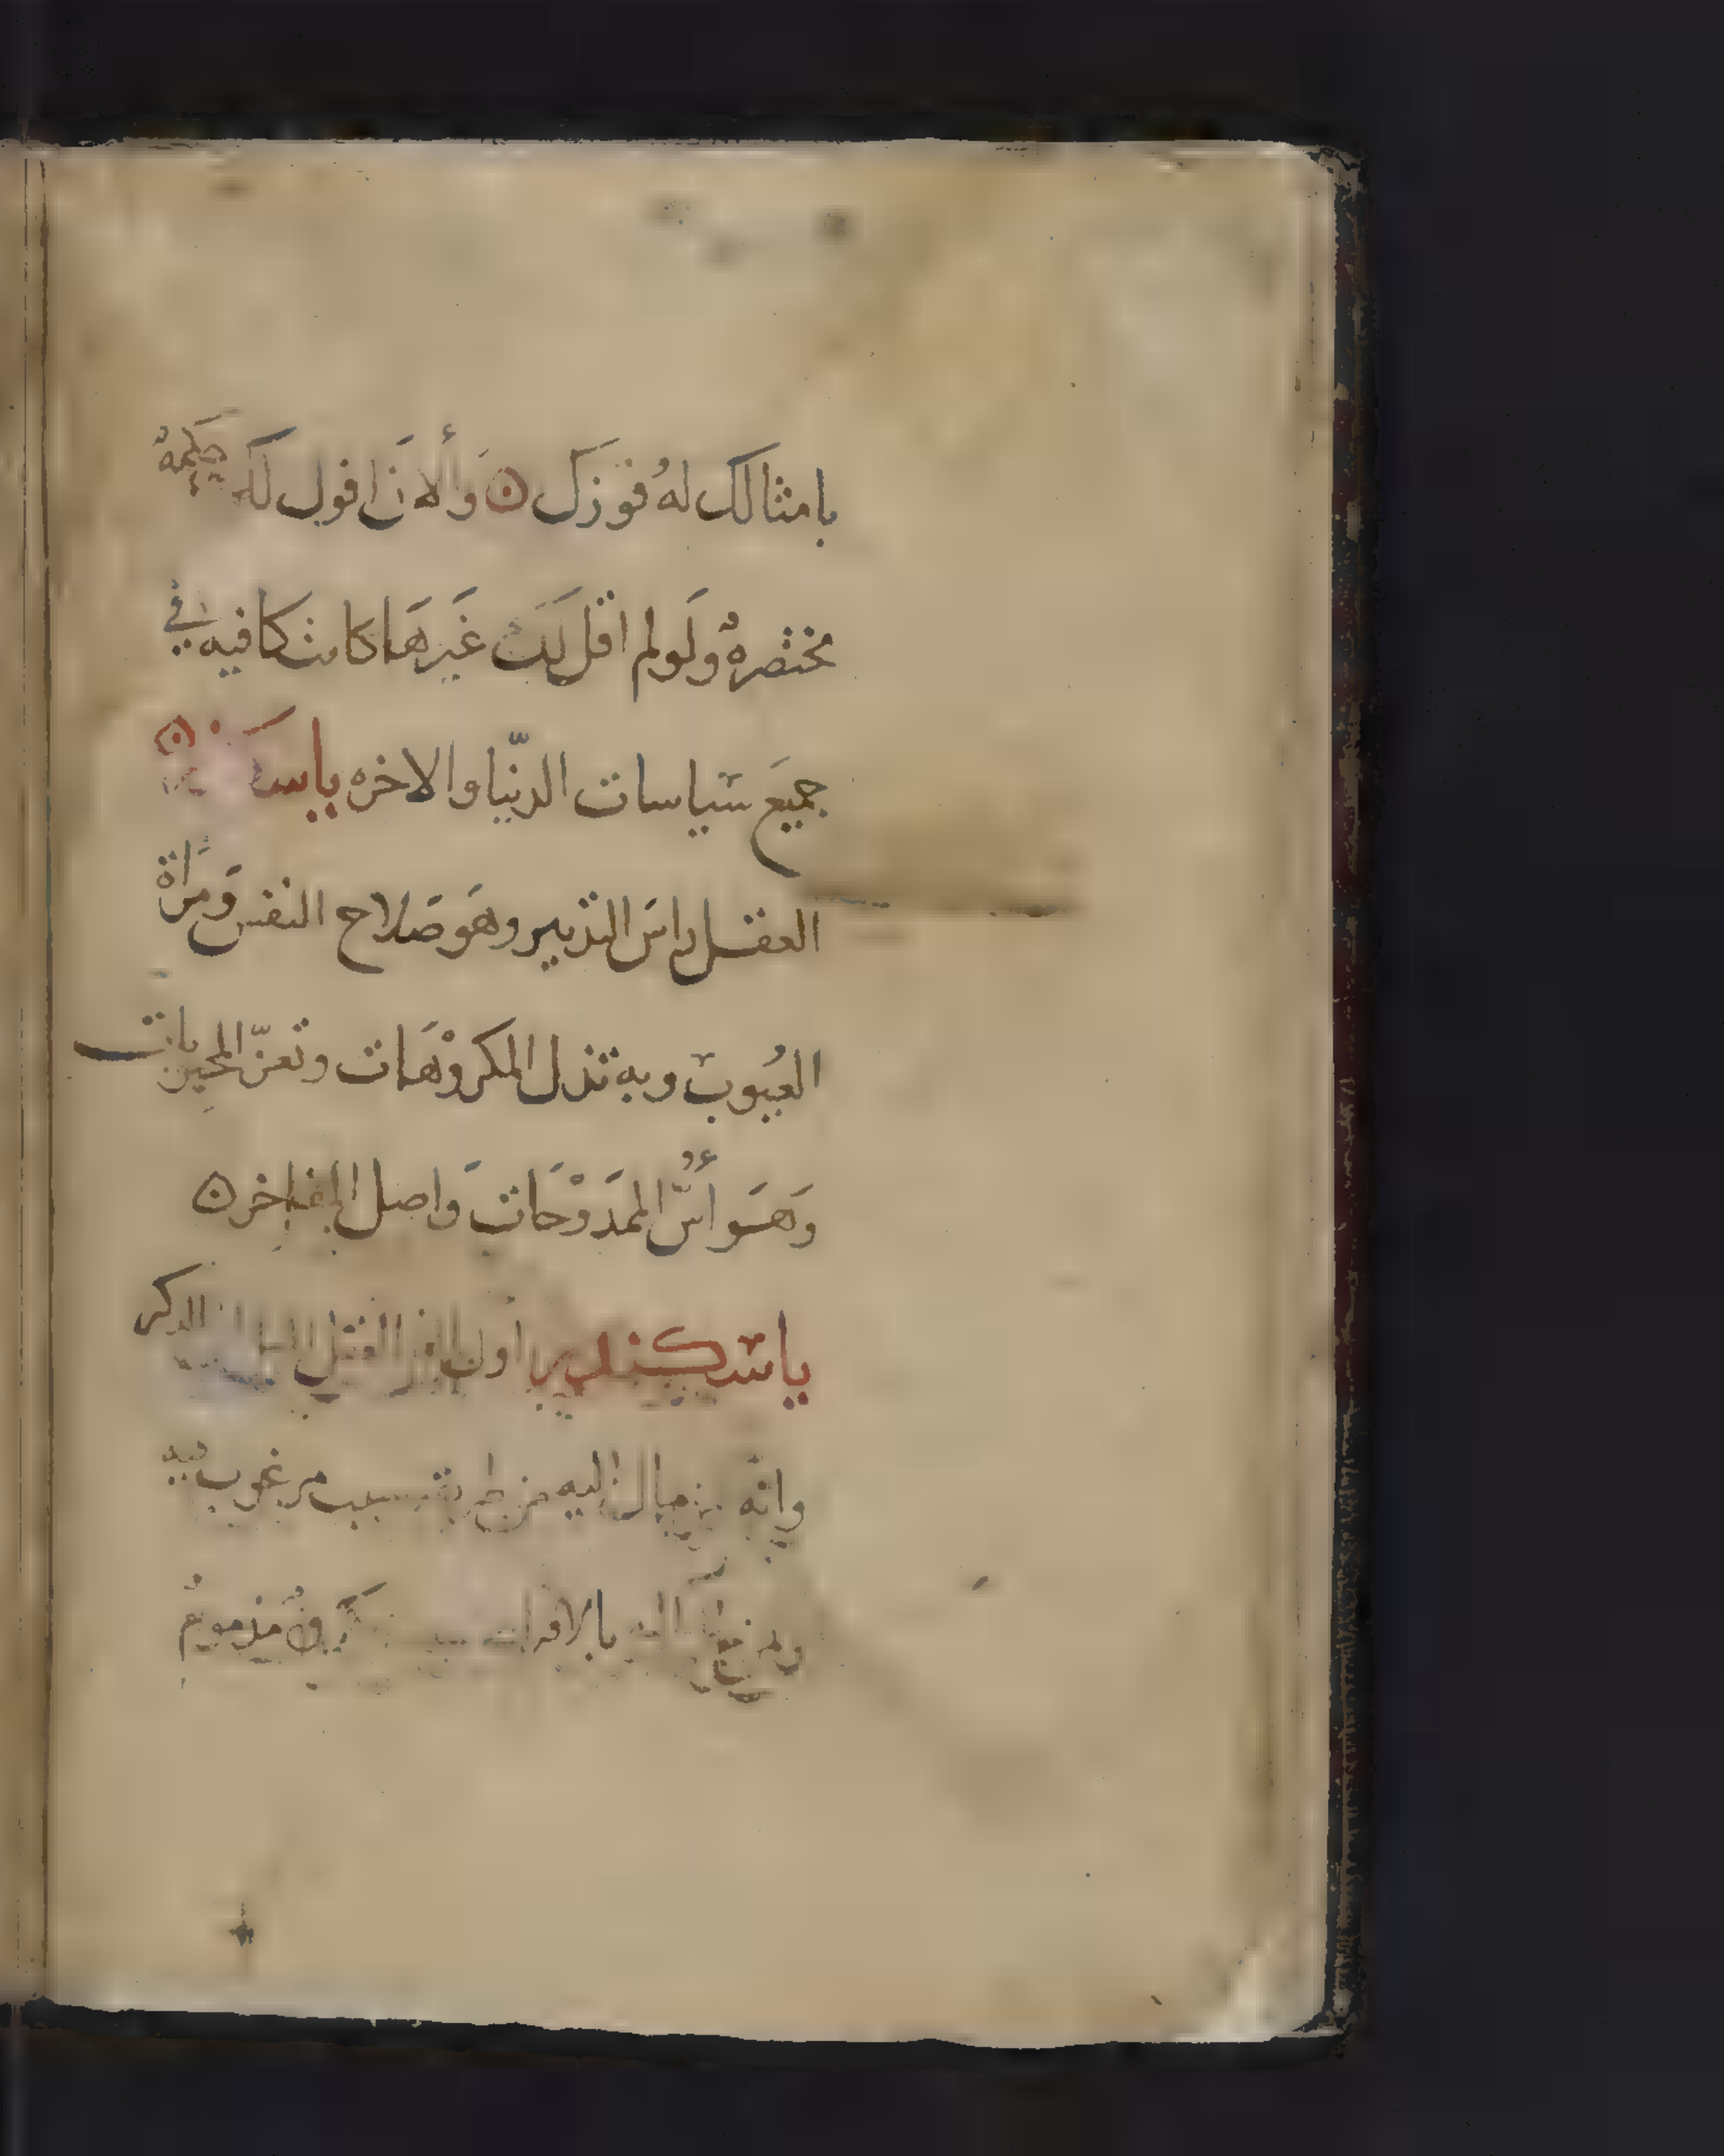 بامثالك لهُ فوزك ۞ وألان اقول لك حكمهٌ
مختصرهٌ ولَولم اقل لك غَيرهَا كانت كافيه في
جميعَ سياسات الدنّيا والاخره ياسك
العقل راسَ التدبير وهَو صَلاح النفس وَمراَة
العيُوب وبه تذل المكروْهَات وتعزّ المحبوبات
وَهَو أسُّ الممدَوْحَات وَاصل المفاخر ۞
ياسكندر اول العقل الذكر
وانّه مال اليه من مرغوب فيه
بالافراط مذمومٌ